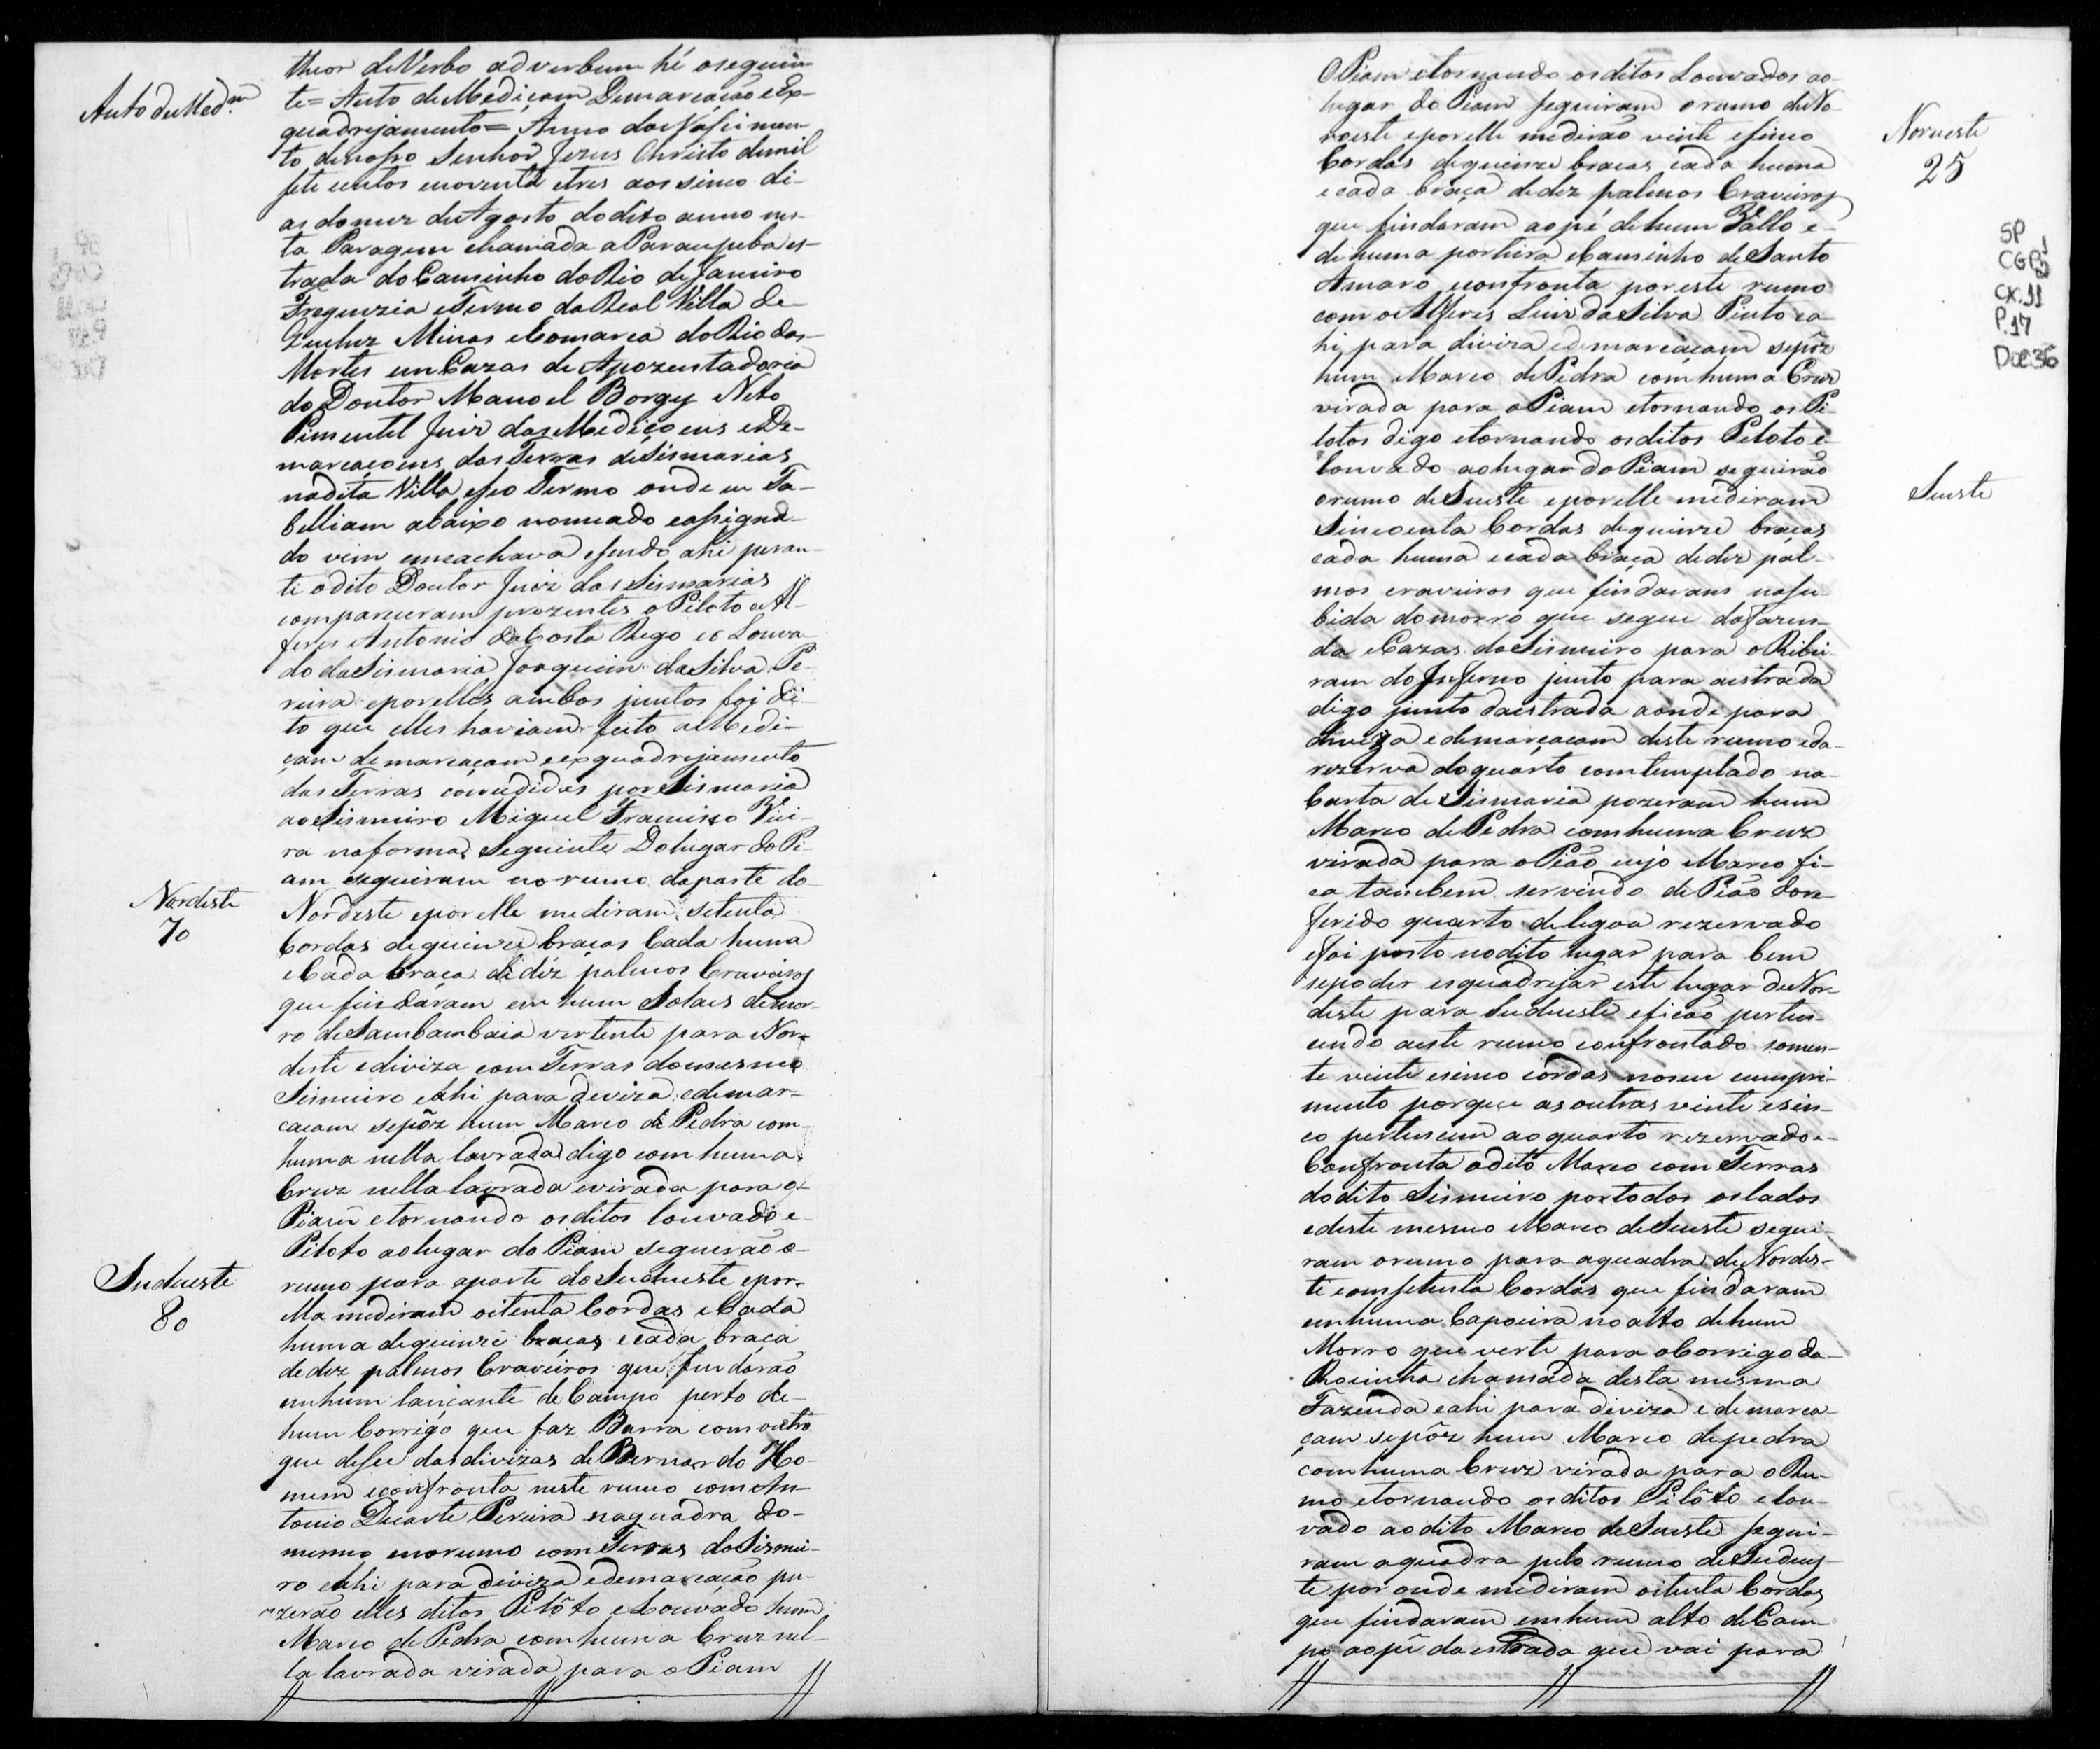 theor de Verbo adverbum hé oseguin-
Auto de Med.m
te= Auto de Mediçam Demarcação e Ex-
quadrijamento= Anno do Nascimen-
to denosso Senhor Jezus Christo demil
sete centos enoventa etres aos sinco di-
as domez de Agosto dodito anno nes-
ta Paragem chamada a Paraupeba es-
trada do Caminho do Rio de Janeiro
Freguezia e Termo da Real Villa de
Queluz Minas e Comarca do Rio das
Mortes em Cazas de Apozentadoria
do Doutor Manoel Borges Neto
Pimentel Juiz das Mediçoens e De-
marcaçoens das Terras de Sismarias
nadita Villa eseo Termo onde eu Ta-
belliam abaixo nomeado eassigna-
do vim emeachava esendo ahi peran-
te odito Doutor Juiz das Sismarias
compareceram prezentes o Piloto o Al-
feres Antonio da Costa Rego eo Louva
do da Sismaria Joaquim da Silva Pe-
reira eporelles ambos juntos foi di-
to que elles haviam feito a Medi-
çam demarcaçam eexquadrijamento
das Terras concedidas por Sismaria
ao Sismeiro Miguel Francisco Viei-
ra naforma seguinte Dolugar do Pi-
am seguiram no rumo daparte do
Nordeste
70
Nordeste eporelle mediram setenta
Cordas dequinze braças Cada huma
eCada braça de déz palmos Craveiros
que findáram em hum Solaes demor-
ro de Sambambaia vertente para Nor-
deste ediviza com Terras domesmo
Sismeiro eahi para deviza edemar-
cacam sepôz hum Marco de Pedra com
huma nella lavrada digo com huma
Cruz nella lavrada evirada para o
Piam etornando osditos louvado e
Piloto aolugar do Piam seguirão o
Sudueste
80
rumo para aparte do Suduéste epor-
lla mediram oitenta Cordas eCada
huma dequinze braças ecada braca
dedez palmos Craveiros que findárão
emhum lançante de Campo perto de
hum Corrigo que faz Barra com outro
que desce das divizas de Bernardo Ho-
mem econfronta neste rumo com An-
tonio Duarte Pereira naquadra do
mesmo enorumo com Terras do Sismei-
ro eahi para diviza edemarcacão pu-
zerão elles ditos Pilôto eLouvado hum
Marco de Pedra com huma Cruz nel-
la lavrada virada para o Piam
O Piam etornando osditos Louvados ao
lugar do Piam seguiram orumo de No-
Norueste
25
roeste eporelle medirão vinte esinco
Cordas dequinze bracas cada huma
ecada braça dedez palmos Craveiros
que findaram aopé dehum Vallo e
dehuma porteira e Caminho de Santo
Amaro econfronta por este rumo
com o Alferes Luiz da Silva Pinto ea-
hi para diviza edemarcaçam sepôz
hum Marco de Pedra com huma Cruz
virada para o Piam etornando os Pi-
lotos digo etornando osditos Piloto e
louvado aolugar do Piam seguirão
Sueste
orumo de Sueste eporelle mediram
Sincoenta Cordas dequinze braças
cada huma ecada braça dedez pal-
mos craveiros que findaram nasu
bida domorro que segue dafazen-
da eCazas do Sismeiro para o Ribei-
ram do Inferno junto para aestrada
digo junto daestrada aonde para
diviza edemarcacam deste rumo eda
rezerva doquarto comtemplado na
Carta de Sismaria pozeram hum
Marco de Pedra comhuma Cruz
virada para o Pião cujo Marco fi-
ca tambem servindo de Pião dore-
ferido quarto delegoa rezervado
efoi posto nodito lugar para bem
sepoder esquadrejar este lugar de Nor-
deste para Suduéste eficão perten-
cendo aeste rumo confrontado somen-
te vinte esinco córdas noseu cumpri-
mento porque as outras vinte esin-
co pertencem aoquarto rezervado e
Confronta odito Marco com Terras
dodito Sismeiro portodos oslados
edeste mesmo Marco de Sueste segui-
ram orumo para aquadra de Nordes-
te comsetenta Cordas que findaram
emhuma Capoeira no alto dehum
Morro que verte para oCorrigo da
Rocinha chamada desta mesma
Fazenda eahi para diviza e demarca-
çam sepôz hum Marco depedra
comhuma Cruz virada para o Ru-
mo etornando osditos Pilôto elou-
vado aodito Marco de Sueste segui-
ram aquadra pelo rumo de Sudues-
te por onde mediram oitenta Cordas
que findaram emhum alto de Cam-
po aopé da estrada que vai para
SP
CGP 1
CX. 11
P. 17
Doc 36